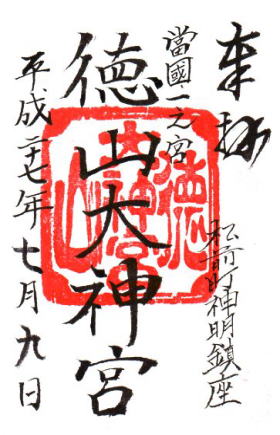 奉拝
當國一之宮
松前町神明鎮座
徳山大神宮
平成二十七年七月九日
徳山大神宮